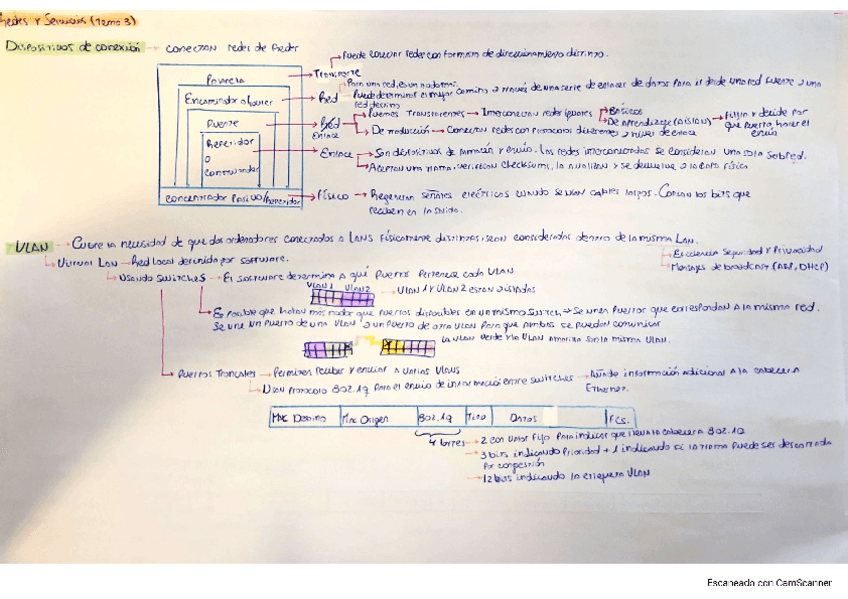 Redes y Servicios (Tema 3)
Dispositivos de conexión → conectan redes de Redes
Puede conectar redes con formatos de direccionamiento distinto.
Pasarela → Transporte
Para una red, es un nodo más
Encaminador o router → Red
Puede determinar el mejor camino a través de una serie de enlaces de datos para ir desde una red fuente a una red destino
Puente → Red Enlace
Puentes Transparentes → Interconectan redes iguales
Básicos
De Aprendizaje (Aislan) → Filtran y decide por que puerto hacer el envío
De traducción → Conectan redes con protocolos diferentes a nivel de enlace
Repetidor o Conmutador
Enlace → Son dispositivos de almacén y envío. Las redes interconectadas se consideran una sola subred.
Aceptan una trama, verifican checksum, la analizan y se devuelve a la capa física
Concentrador Pasivo/Repetidor → Físico → Regeneran señales eléctricas cuando se usan cables largos. Copian los bits que reciben en la salida.
VLAN → Cubre la necesidad de que dos ordenadores conectados a LANs físicamente distintas, sean considerados dentro de la misma Lan.
Eficiencia Seguridad y Privacidad
Virtual Lan → Red local definida por software.
Mensajes de broadcast (ARP, DHCP)
Usando switches → El software determina a qué puertos pertenece cada VLAN
VLAN 1 VLAN 2
VLAN 1 y VLAN 2 están aisladas
Es posible que hayan más nodos que puertos disponibles en un mismo switch → Se unen puertos que correspondan a la misma red.
Se une un puerto de una VLAN a un puerto de otra VLAN para que ambas se puedan comunicar
La VLAN verde y la VLAN amarilla son la misma VLAN.
Puertos Troncales → Permiten recibir y enviar a varias VLANS
Usan Protocolo 802.1q para el envío de información entre switches → Añade información adicional a la cabecera Ethernet.
Mac Destino Mac Origen 802.1q Tipo Datos FCS.
4 bytes → 2 con valor fijo para indicar que lleva la cabecera 802.1Q
3 bits indicando Prioridad + 1 indicando si la trama puede ser descartada
por congestión
12 bits indicando la etiqueta VLAN
Escaneado con CamScanner